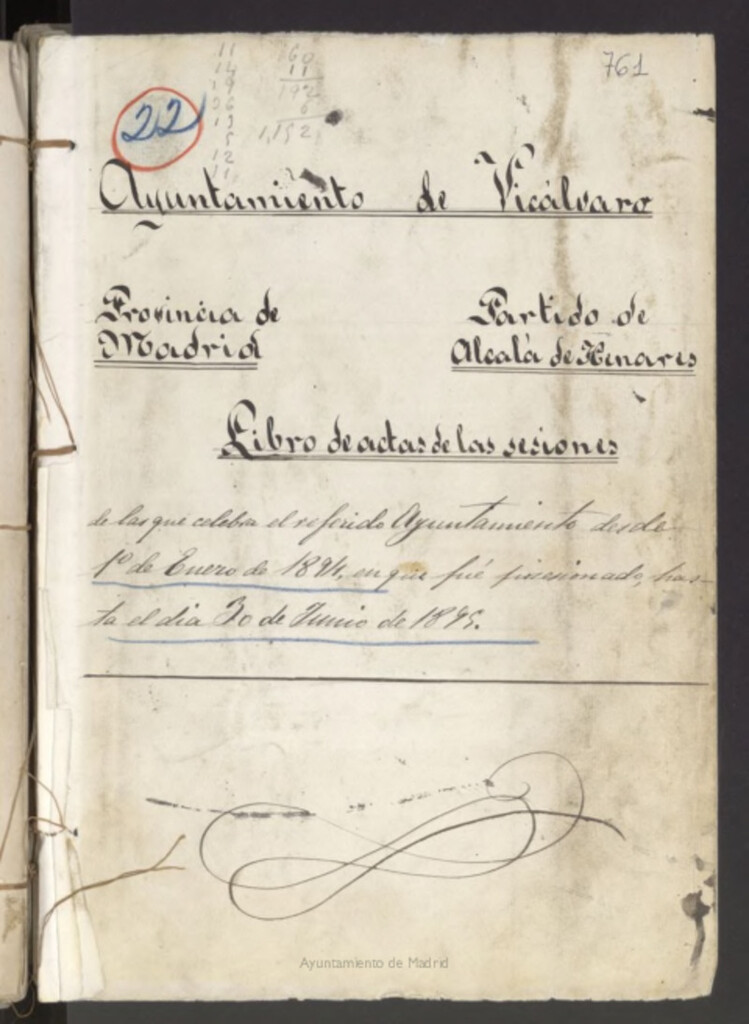 11
14
19
26
19
5
12
11
60
11
192
6
1,152
761
22
Ayuntamiento de Vicálvaro
Provincia de
Madrid
Partido de
Alcalá de Henares
Libro de actas de las sesiones
de las que celebra el referido Ayuntamiento desde
1º de Enero de 1894, en que fué posesionado, has-
ta el dia 30 de Junio de 1895.
Ayuntamiento de Madrid